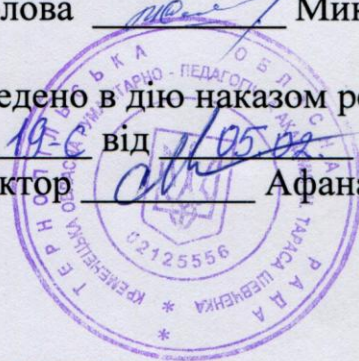 лова Мик
едено в дію наказом ре
19-с від 05.02.
ктор Афана
ТЕРНОПІЛЬСЬКА ОБЛАСНА РАДА
КРЕМЕНЕЦЬКА ОБЛАСНА ГУМАНІТАРНО - ПЕДАГОГІЧНА АКАДЕМІЯ ТАРАСА ШЕВЧЕНКА
02125556